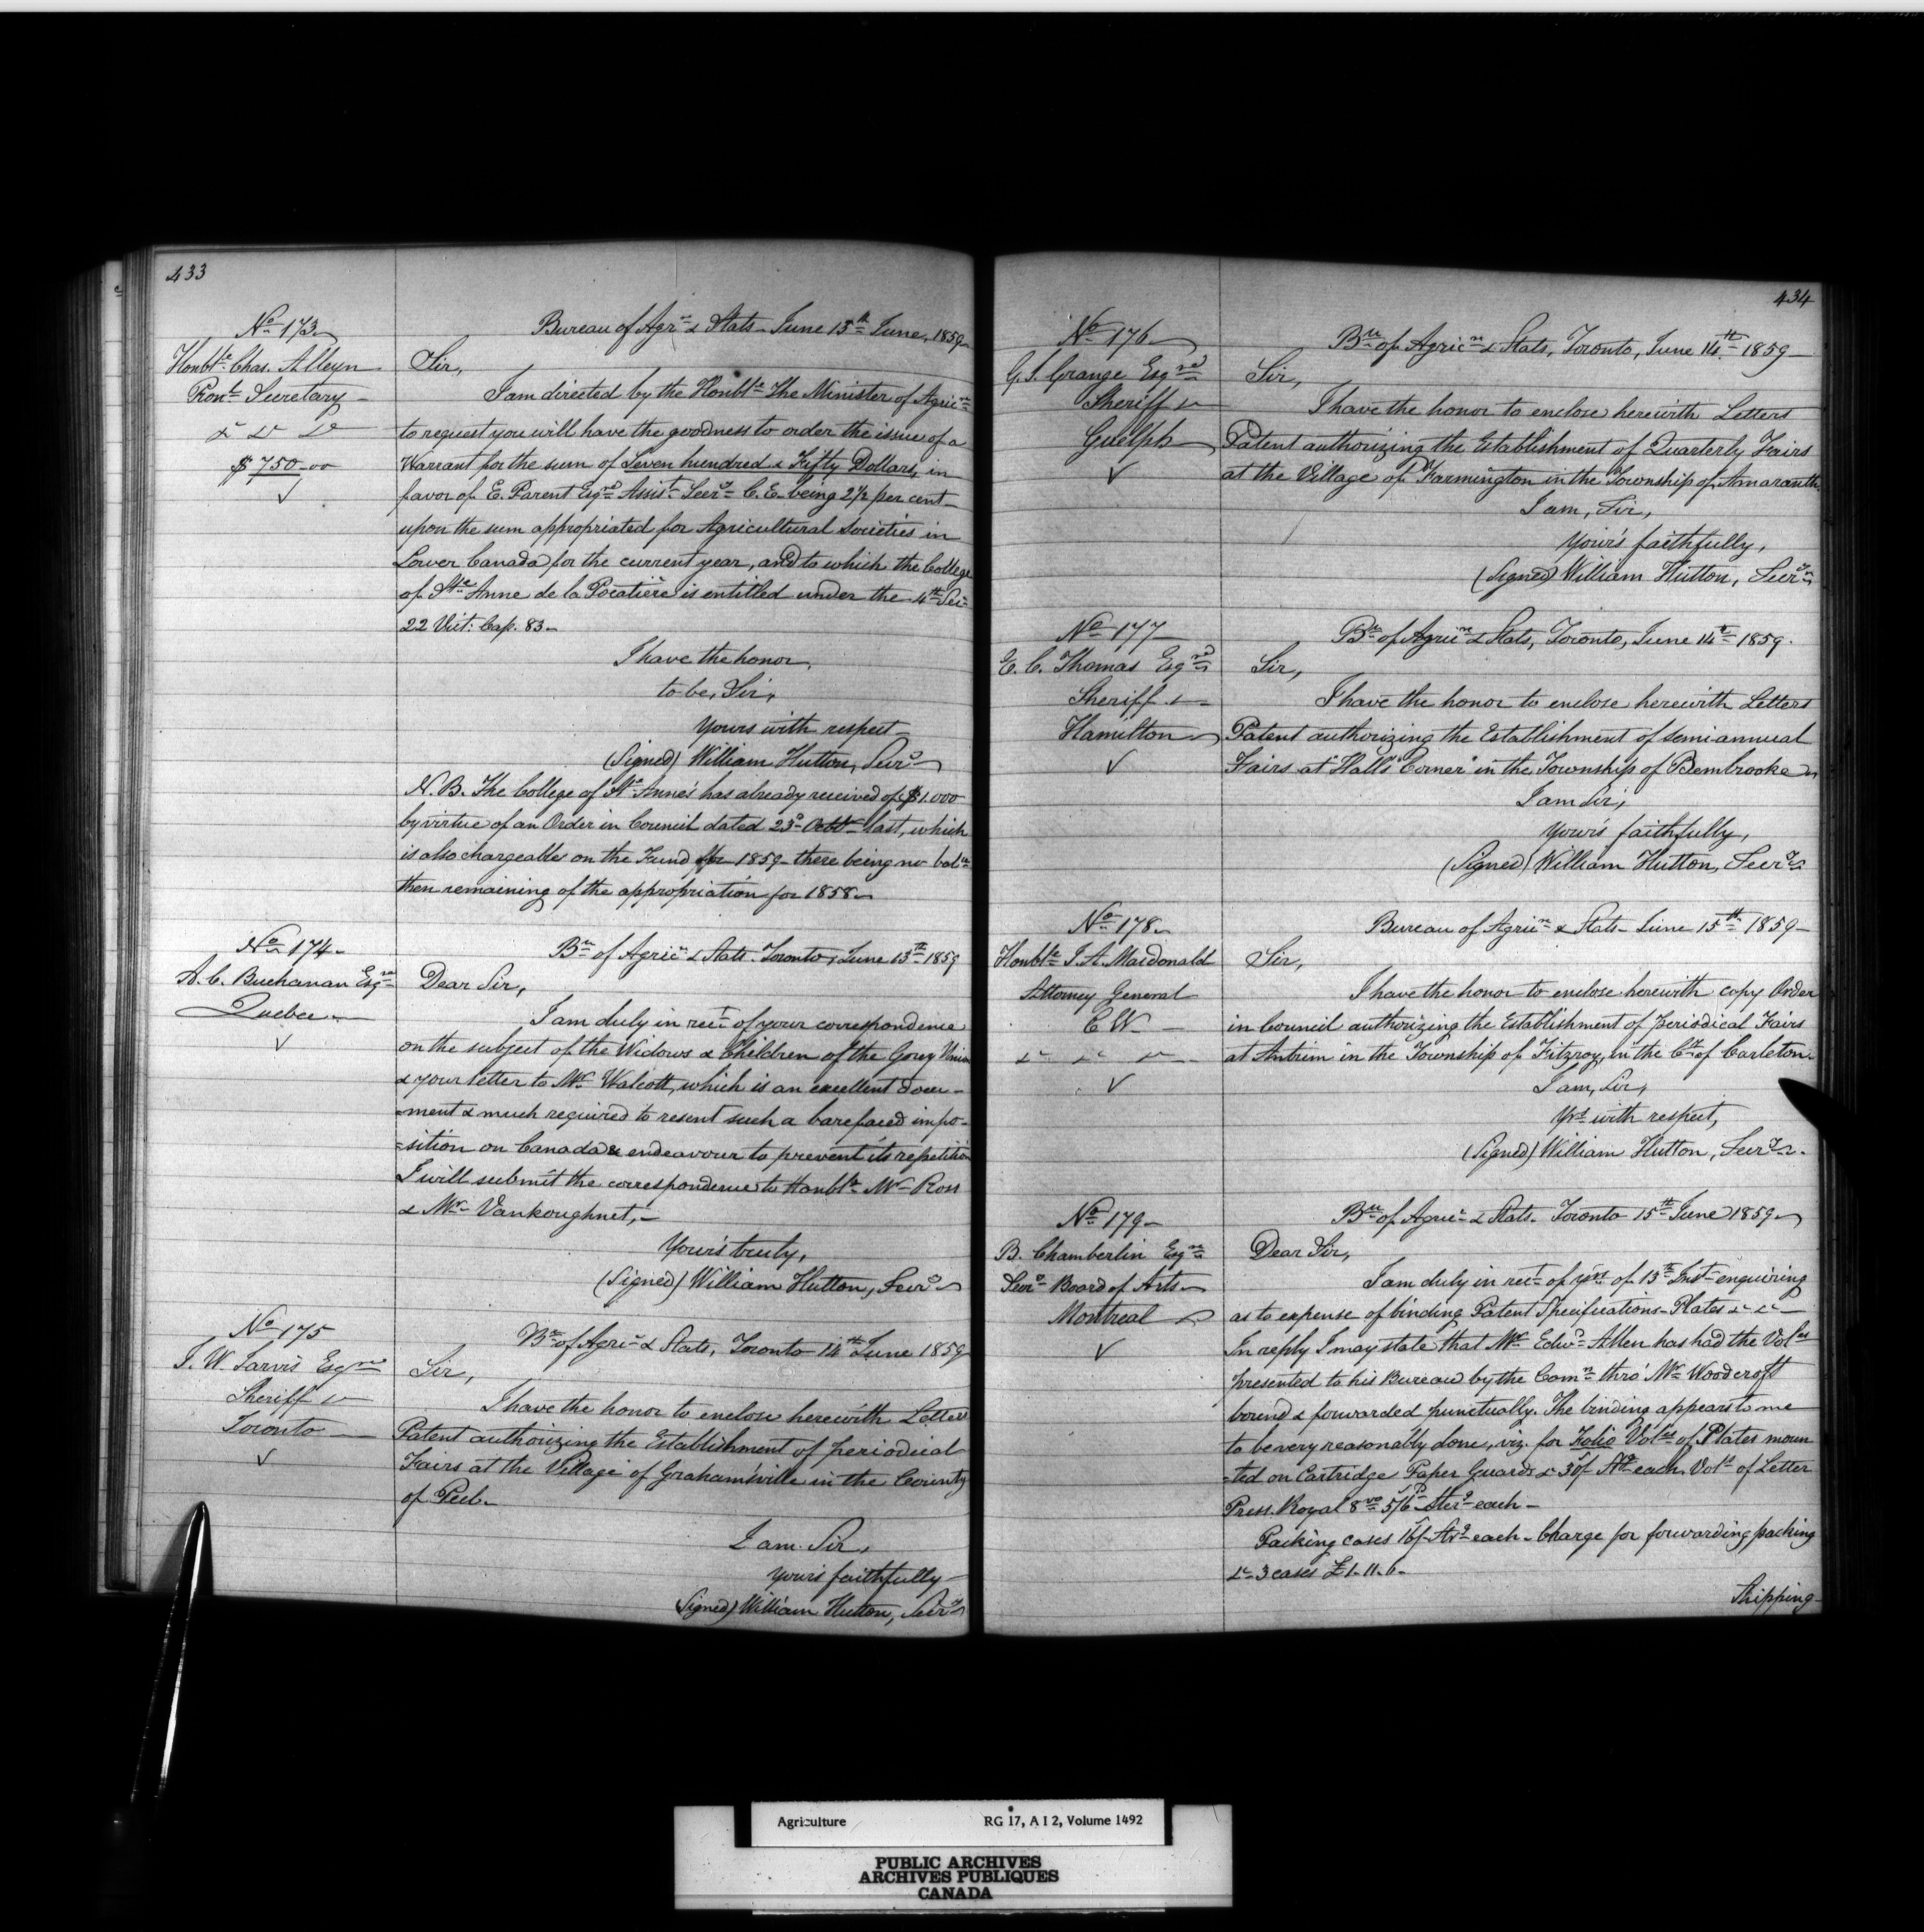 433
No 173
Bureau of Agrn & Stats - June 15th June, 1859
Honble Chas. Alleyn
Provl Secretary -
& & &
$750-00
Sir,
I am directed by the Honble the Minister of Agricn
to request you will have the goodness to order the issue of a
Warrant for the sum of Seven hundred & Fifty Dollars, in
favor of E. Parent Esqre Assist Secry C.E. being 2½ per cent
upon the sum appropriated for Agricultural Societies in
Lower Canada for the current year, and to which the College
of Ste Anne de la Pocatière is entitled under the 4th Sec
22 Vict: Cap. 83.
I have the honor,
to be, Sir,
Yours with respect
(Signed) William Hutton, Secry
N.B. The College of Ste Anne's has already received of $1.000
by virtue of an Order in Council dated 23d Octr last, which
is also chargeable on the Fund for 1859 - there being no balce
then remaining of the appropriation for 1858
No 174
Bu of Agric & Stats. Toronto, June 13th 1859
A. C. Buchanan Esqre
Quebec
Dear Sir,
I am duly in rect of your correspondence
on the subject of the Widows & Children of the Gorey Union
& your letter to Mr Walcott, which is an excellent docu-
-ment & much required to resent such a barefaced impo-
-sition on Canada & endeavour to prevent its repetition
I will submit the correspondence to Honble Mr Ross
& Mr Vankoughnet,
Yours truly,
(Signed) William Hutton, Secry
No 175
Bu of Agri & Stats, Toronto 14th June 1859
J. W. Jarvis Esqre
Sheriff &
Toronto
Sir,
I have the honor to enclose herewith Letters
Patent authorizing the Establishment of periodical
Fairs at the Village of Grahamsville in the County
of Peel.
I am. Sir,
Yours faithfully
(Signed) William Hutton, Secry
434
No 176
Bu of Agricn & Stats, Toronto, June 14th 1859
G. J. Grange Esqre
Sheriff &
Guelph
Sir,
I have the honor to enclose herewith Letters
Patent authorizing the Establishment of Quarterly Fairs
at the Village of Farmington in the Township of Amaranth.
I am, Sir,
Yours faithfully,
(Signed) William Hutton, Secry
No 177
Bu of Agricn & Stats, Toronto, June 14th 1859.
E. C. Thomas Esqre
Sheriff &
Hamilton
Sir,
I have the honor to enclose herewith Letters
Patent authorizing the Establishment of semiannual
Fairs at "Hall's Corner" in the Township of Bembrooke
I am Sir,
Yours faithfully,
(Signed) William Hutton, Secry
No 178
Bureau of Agricn & Stats - June 15th 1859
Honble J. A. Macdonald
Attorney General
C W
& & &
Sir,
I have the honor to enclose herewith copy Order
in Council authorizing the Establishment of Periodical Fairs
at Antrim in the Township of Fitzroy, in the Cty of Carleton.
I am, Sir,
Yrs with respect,
(Signed) William Hutton, Secry.
No 179
Bu of Agric & Stats. Toronto 15th June 1859
B. Chamberlin Esqre
Secry Board of Arts
Montreal
Dear Sir,
I am duly in rect of yrs of 13th Inst enquiring
as to expense of binding Patent Specifications - Plates & &
In reply I may state that Mr Edwd Allen has had the Vols
presented to his Bureau by the Comn thro' Mr Woodcroft
bound & forwarded punctually. The binding appears to me
to be very reasonably done, viz. for Folio Vols of Plates moun
-ted on Cartridge Paper Guards & 30/ Stg each, Vols of Letter
Press. Royal 8vo 5/6 Sterg each -
Packing cases 16/ Stg each - Charge for forwarding packing
& 3 cases £1.11.6.
Shipping
Agriculture RG 17, A I 2, Volume 1492
PUBLIC ARCHIVES
ARCHIVES PUBLIQUES
CANADA